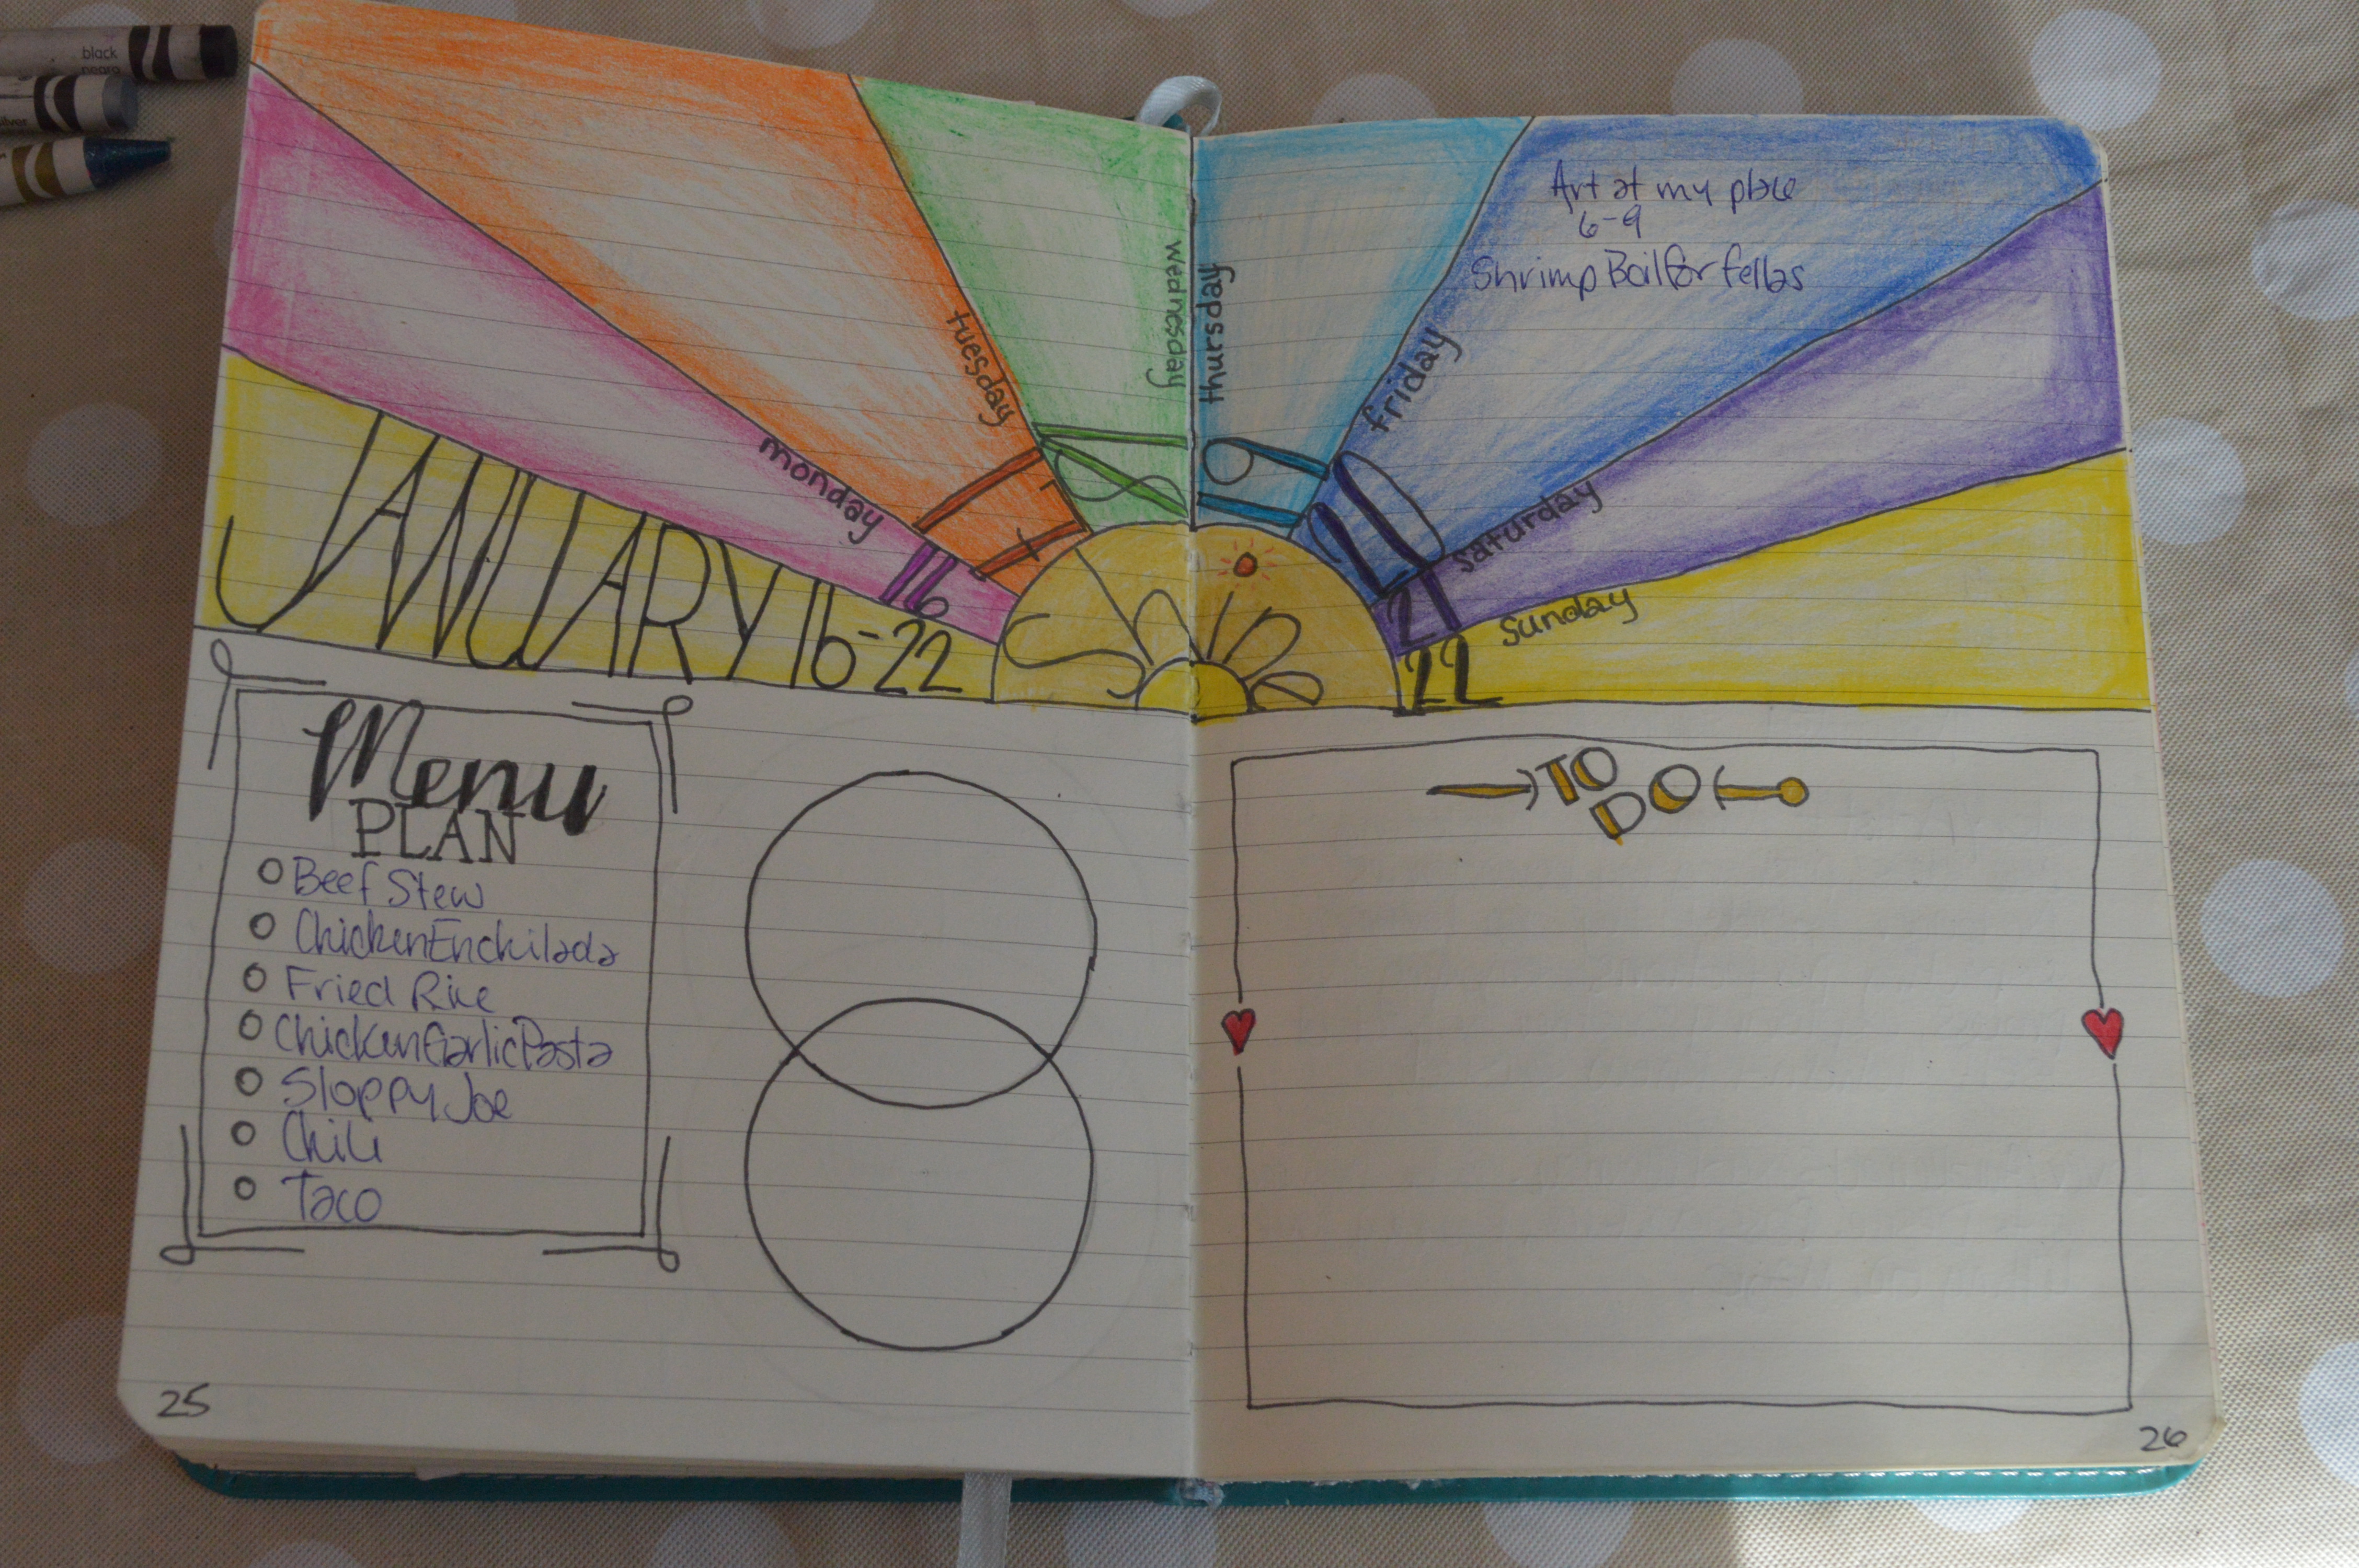 black
negro
JANUARY 16-22
monday
16
tuesday
17
wednesday
18
thursday
19
friday
20
Art at my place
6-9
Shrimp Boil for fellas
saturday
21
sunday
22
Menu
PLAN
Beef Stew
Chicken Enchilada
Fried Rice
Chicken Garlic Pasta
Sloppy Joe
Chili
Taco
25
TO
DO
26